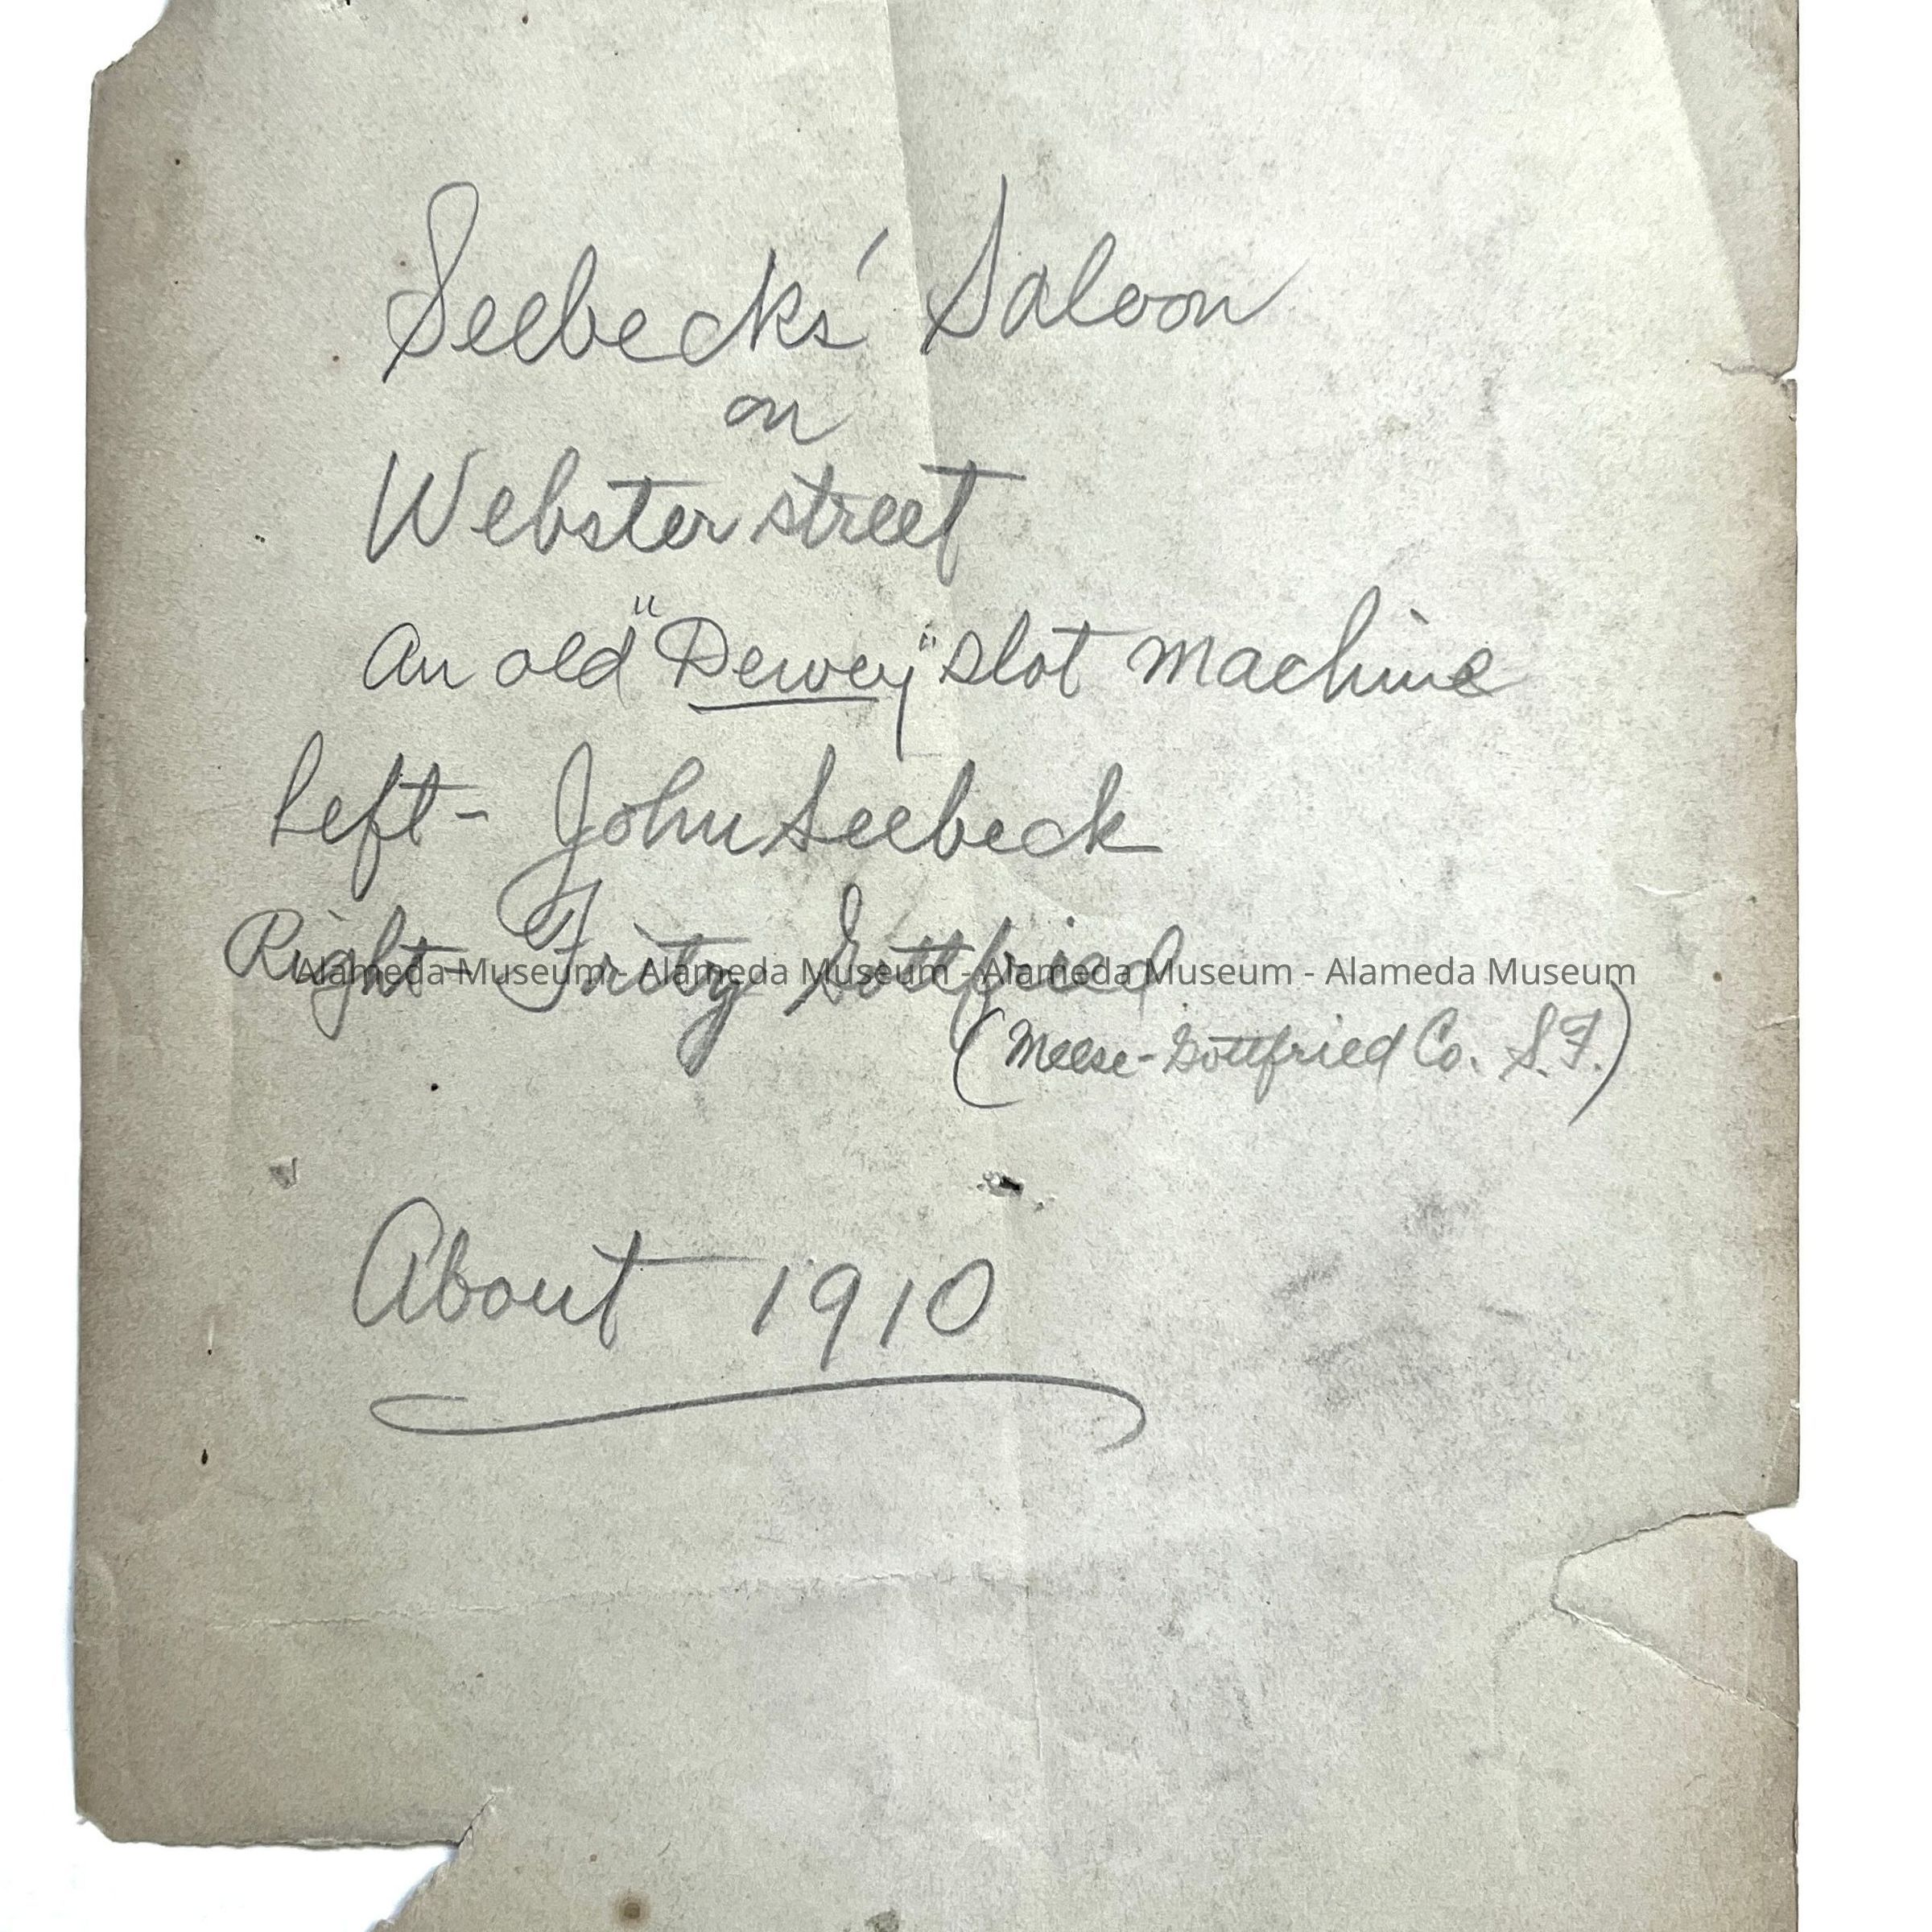 Seebecks' Saloon
on
Webster street
An old "Dewey" slot machine
Left - John Seebeck
Right - Fritz Gottfried
Alameda Museum - Alameda Museum - Alameda Museum - Alameda Museum
(Meese-Gottfried Co. S.F.)
About 1910